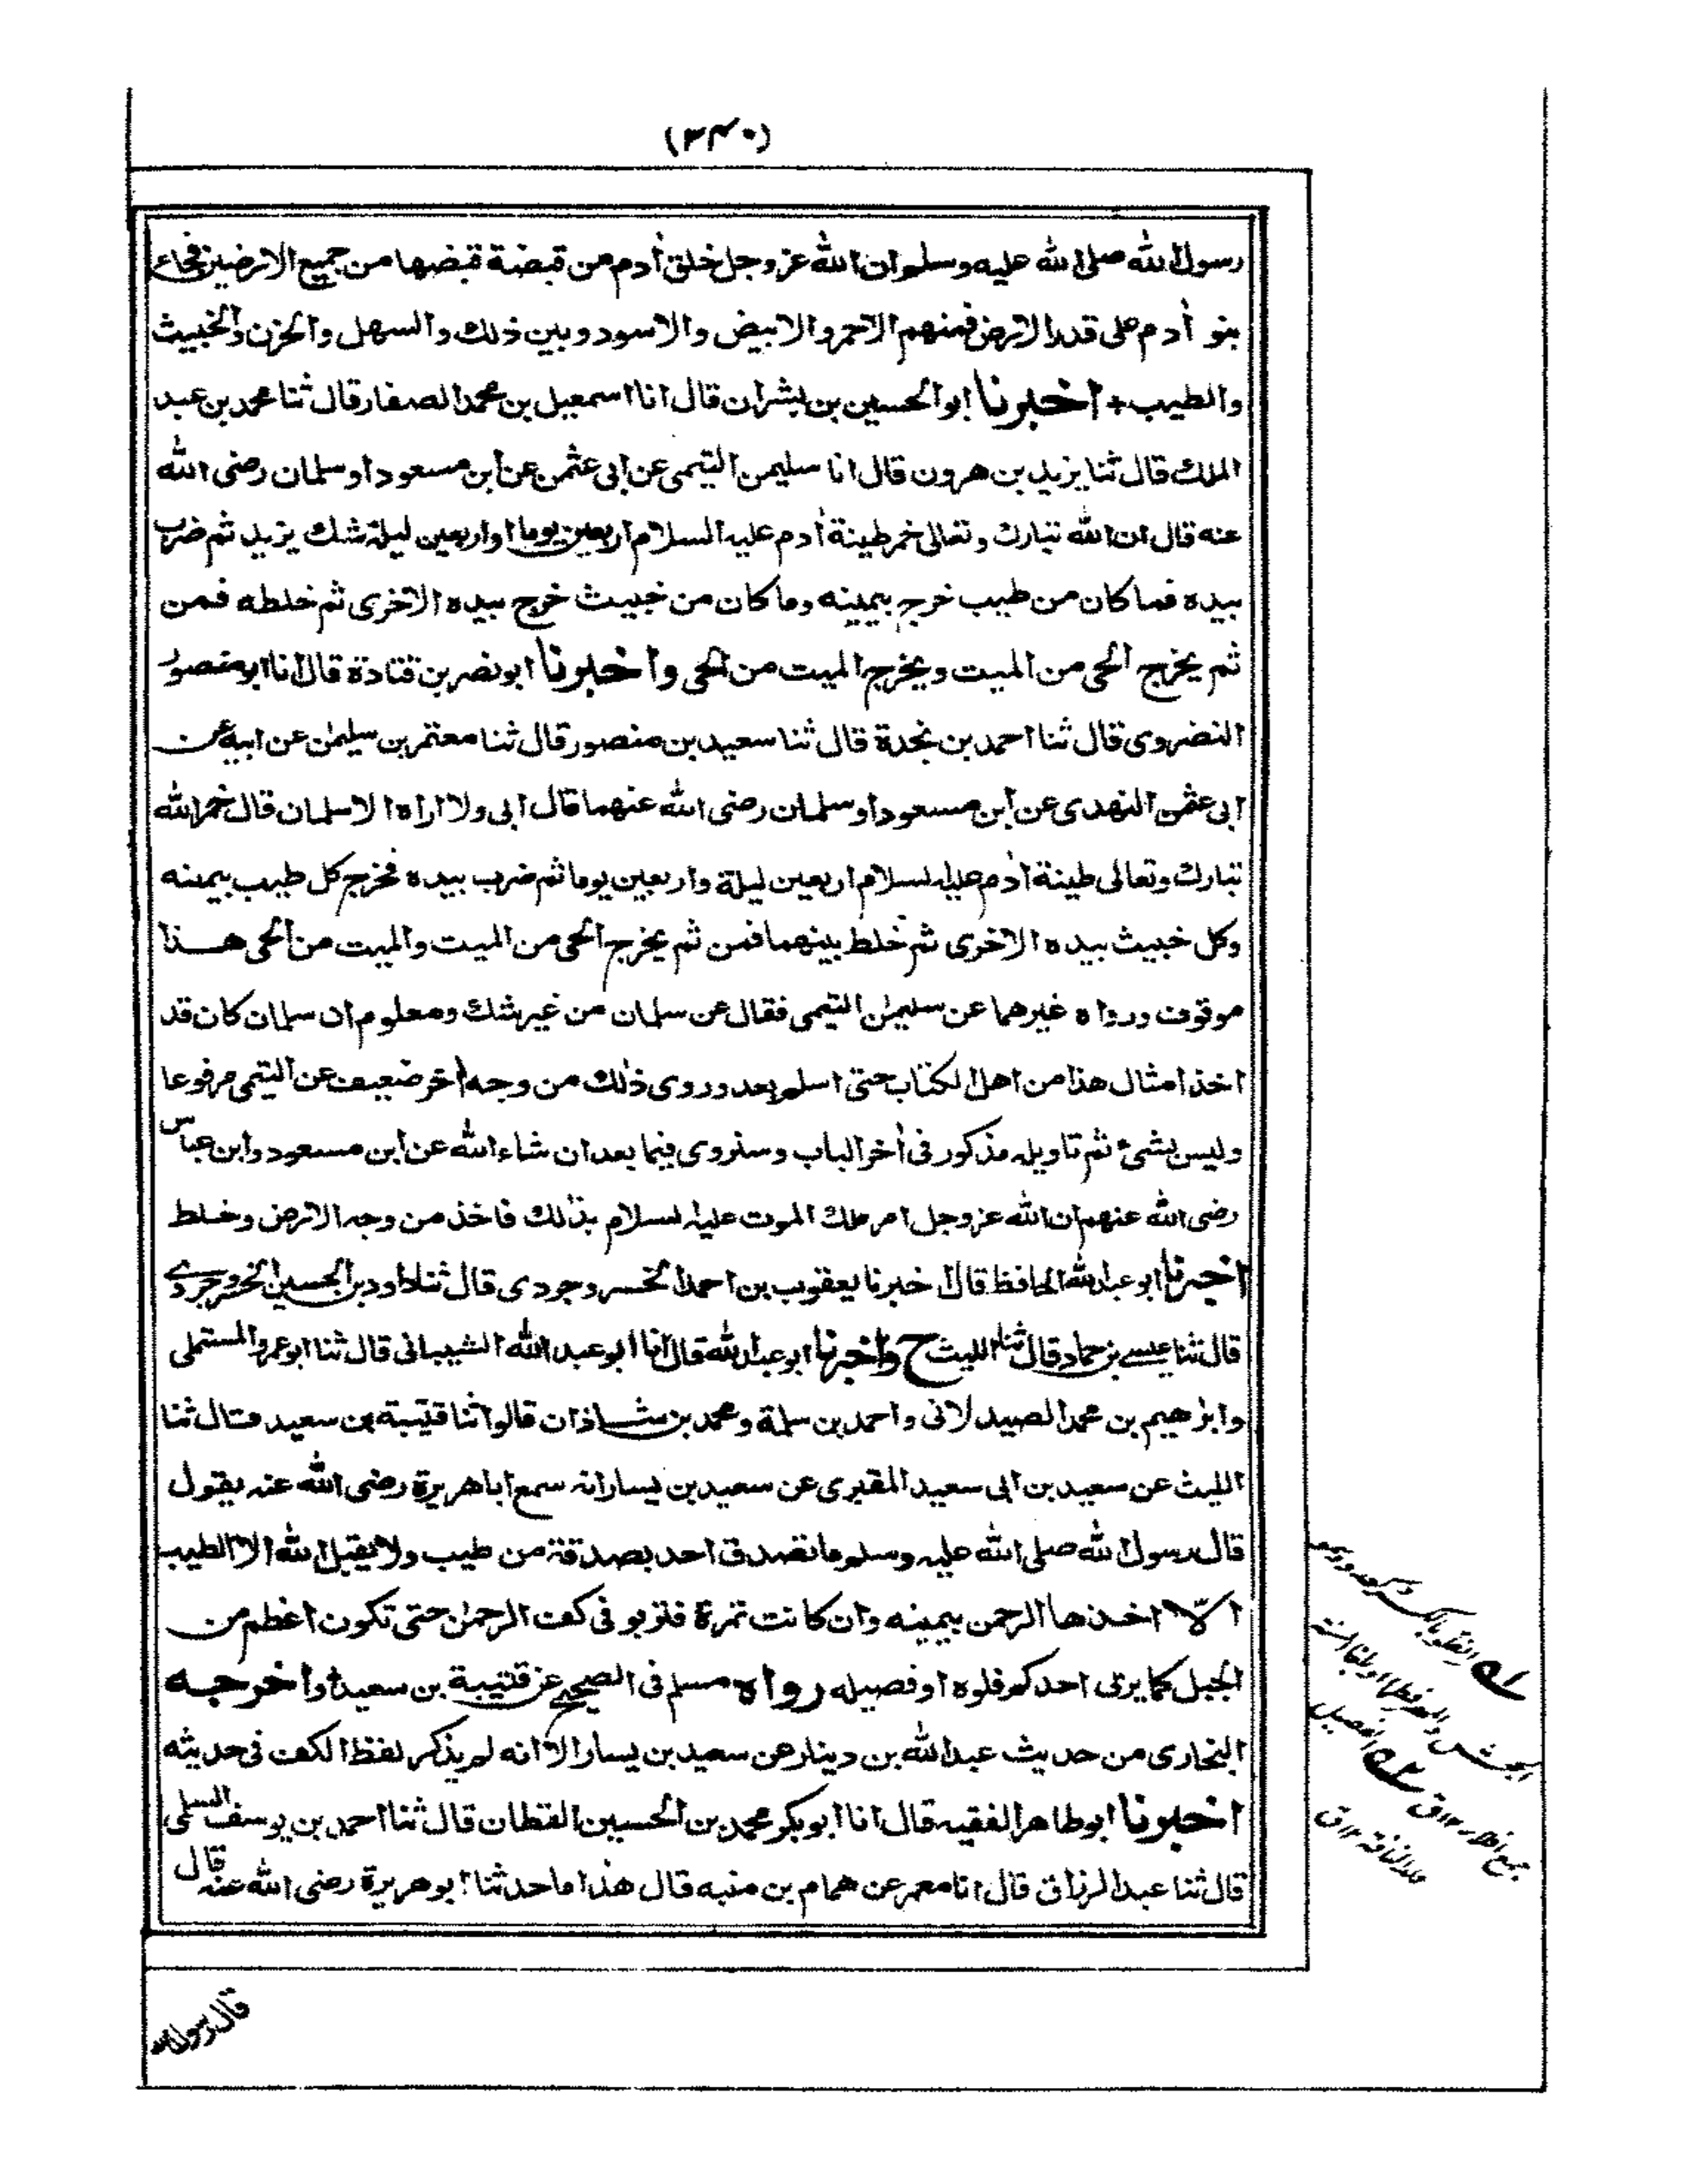 (٢٤٠)
رسول الله صلى الله عليه وسلم ان الله عزوجل خلق أدم من قبضة قبضها من جميع الارضين فجاء
بنو أدم على قدر الارض فمنهم الاحمر والابيض والاسود وبين ذلك والسهل والحزن والخبيث
والطيب + اخبرنا ابو الحسين بن بشران قال انا اسمعيل بن محمد الصفار قال ثنا محمد بن عبد
الملك قال ثنا يزيد بن هرون قال انا سليمن التيمى عن ابى عثمن عن ابن مسعود او سلمان رضى الله
عنه قال ان الله تبارك وتعالى خمر طينة أدم عليه السلام اربعين يوما او اربعين ليلة شك يزيد ثم ضرب
بيده فما كان من طيب خرج بيمينه وما كان من خبيث خرج بيده الاخرى ثم خلطه فمن
ثم يخرج الحى من الميت ويخرج الميت من الحى واخبرنا ابو نصر بن قتادة قال انا ابو منصور
النضروى قال ثنا احمد بن نجدة قال ثنا سعيد بن منصور قال ثنا معتمر بن سليمن عن ابيه عن
ابى عثمن النهدى عن ابن مسعود او سلمان رضى الله عنهما قال ابى ولا اراه الا سلمان قال خمر الله
تبارك وتعالى طينة أدم عليه السلام اربعين ليلة واربعين يوما ثم ضرب بيده فخرج كل طيب بيمينه
وكل خبيث بيده الاخرى ثم خلط بينهما فمن ثم يخرج الحى من الميت والميت من الحى هذا
موقوف ورواه غيرهما عن سليمن التيمى فقال عن سلمان من غير شك ومعلوم ان سلمان كان قد
اخذ امثال هذا من اهل الكتاب حتى اسلم بعد وروى ذلك من وجه أخر ضعيف عن التيمى مرفوعا
وليس بشئ ثم تاويله مذكور فى أخر الباب وسنروى فيما بعد ان شاء الله عن ابن مسعود وابن عباس
رضى الله عنهم ان الله عزوجل امر ملك الموت عليه السلام بذلك فاخذ من وجه الارض وخلط
اخبرنا ابو عبد الله الحافظ قال اخبرنا يعقوب بن احمد الخسروجردى قال ثنا داود بن الحسين الخسروجردى
قال ثنا عيسى بن حماد قال ثنا الليث ح واخبرنا ابو عبد الله قال انا ابو عبد الله الشيبانى قال ثنا ابو عمرو المستملى
وابرهيم بن محمد الصيدلانى واحمد بن سلمة ومحمد بن شاذان قالوا ثنا قتيبة بن سعيد قال ثنا
الليث عن سعيد بن ابى سعيد المقبرى عن سعيد بن يسار انه سمع ابا هريرة رضى الله عنه يقول
قال رسول الله صلى الله عليه وسلم ما تصدق احد بصدقة من طيب ولا يقبل الله الا الطيب
الا اخذها الرحمن بيمينه وان كانت تمرة فتربو فى كف الرحمن حتى تكون اعظم من
الجبل كما يربى احدكم فلوه او فصيله رواه مسلم فى الصحيح عن قتيبة بن سعيد واخرجه
البخارى من حديث عبد الله بن دينار عن سعيد بن يسار الا انه لم يذكر لفظ الكف فى حديثه
اخبرنا ابو طاهر الفقيه قال انا ابو بكر محمد بن الحسين القطان قال ثنا احمد بن يوسف السلمى
قال ثنا عبد الرزاق قال انا معمر عن همام بن منبه قال هذا ما حدثنا ابو هريرة رضى الله عنه قال
قال رسول الله